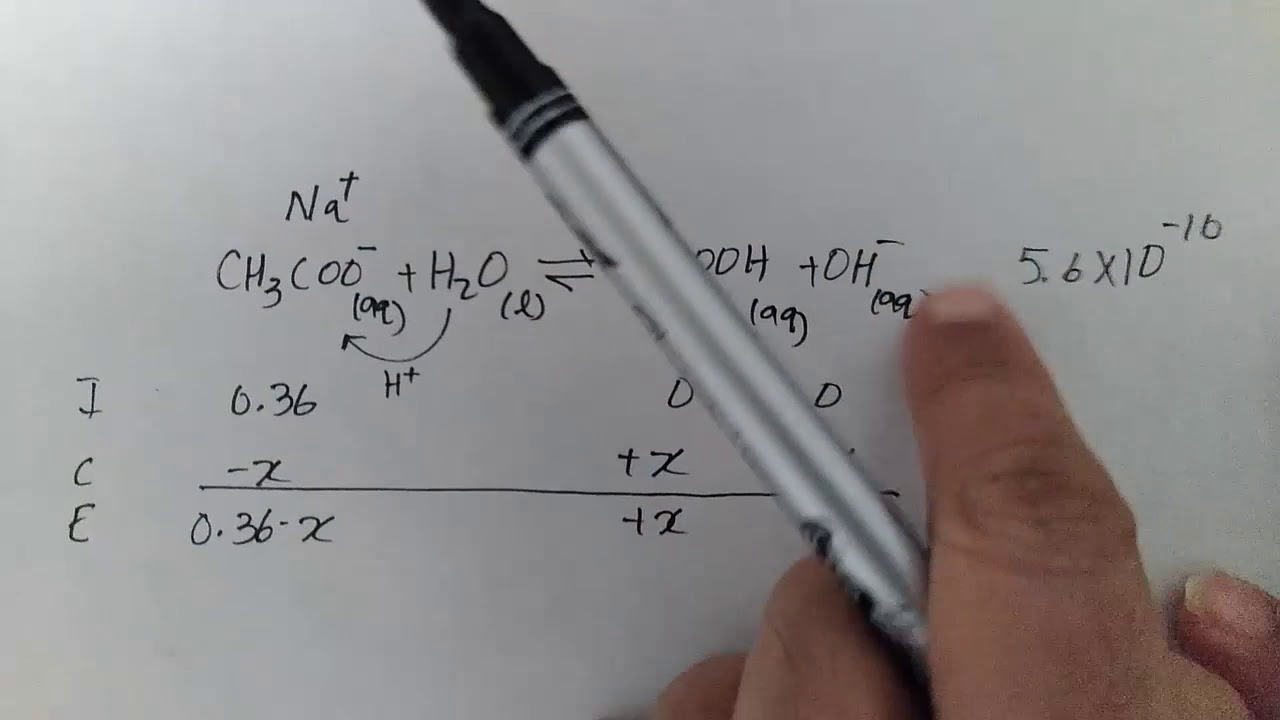 Na⁺
CH₃COO⁻(aq) + H₂O(l) ⇌ OOH(aq) + OH⁻(aq) 5.6×10⁻¹⁰
H⁺
I 0.36 0 0
C -x +x
E 0.36-x +x